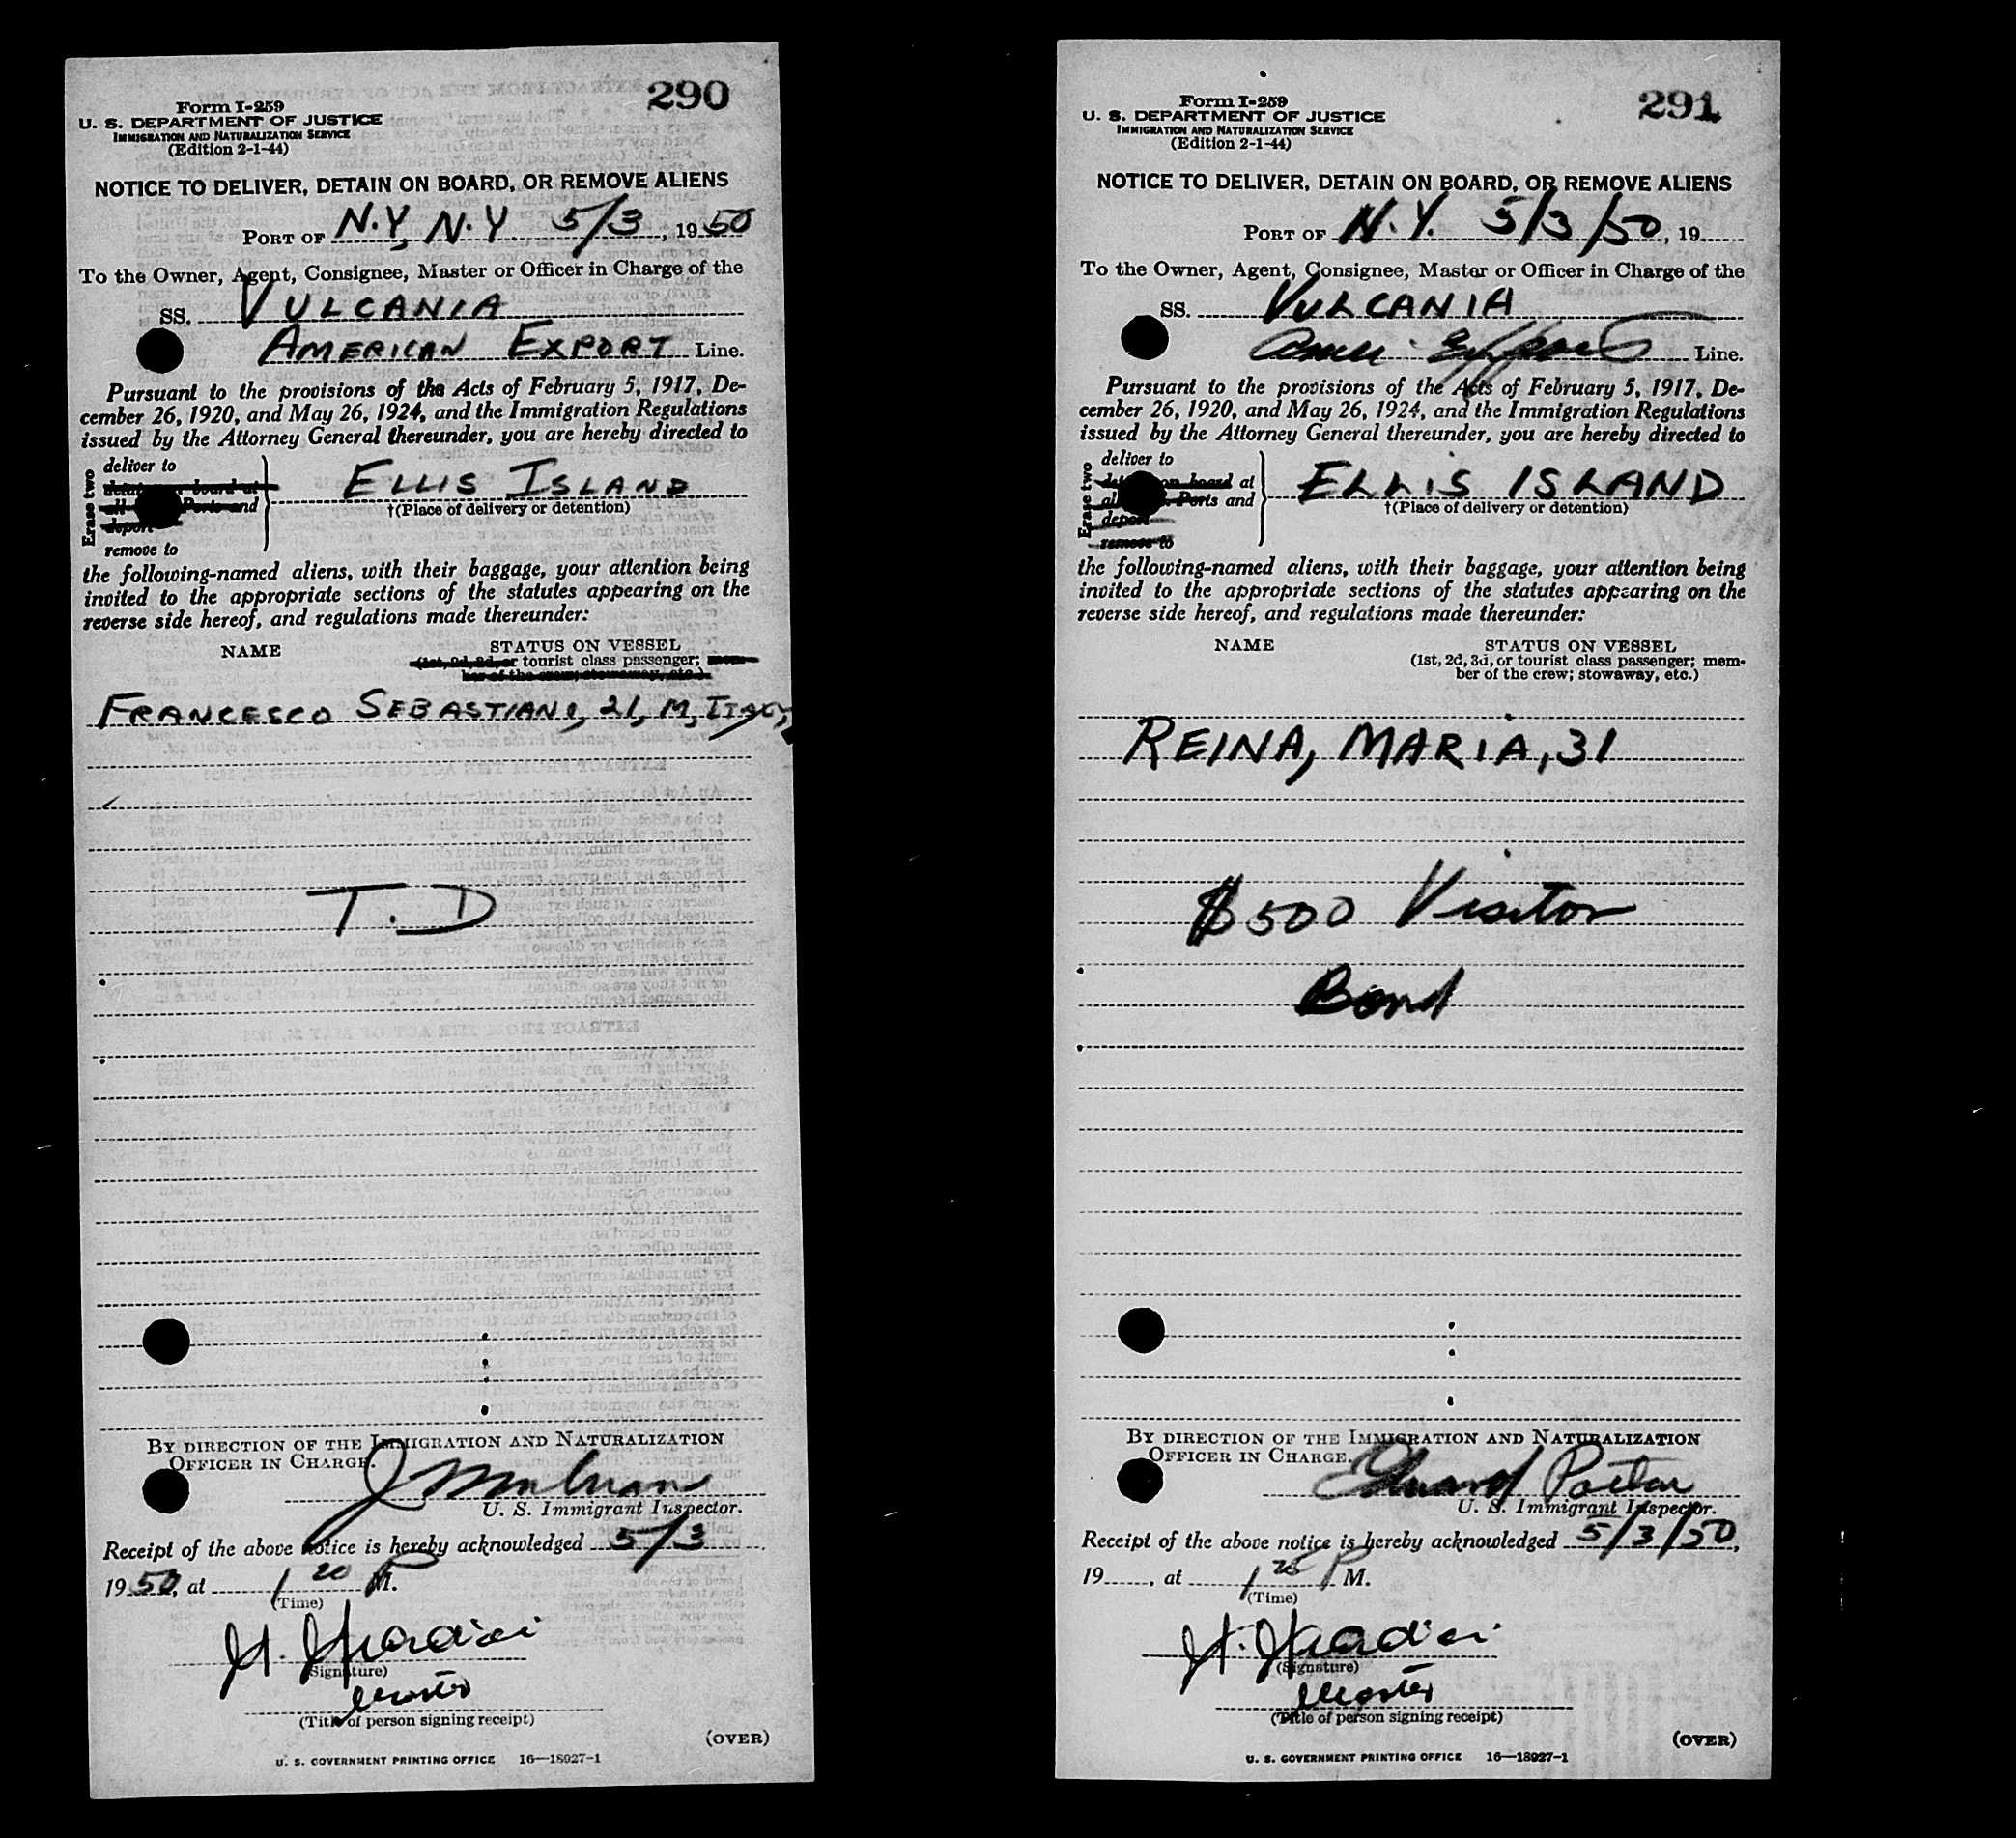 290
Form I-259
U. S. DEPARTMENT OF JUSTICE
IMMIGRATION AND NATURALIZATION SERVICE
(Edition 2-1-44)
NOTICE TO DELIVER, DETAIN ON BOARD, OR REMOVE ALIENS
PORT OF N.Y, N.Y. 5/3, 1950
To the Owner, Agent, Consignee, Master or Officer in Charge of the
SS. VULCANIA
AMERICAN EXPORT Line.
Pursuant to the provisions of the Acts of February 5, 1917, De-
cember 26, 1920, and May 26, 1924, and the Immigration Regulations
issued by the Attorney General thereunder, you are hereby directed to
Erase two
deliver to
board at
Ports and
deport
remove to
ELLIS ISLAND
†(Place of delivery or detention)
the following-named aliens, with their baggage, your attention being
invited to the appropriate sections of the statutes appearing on the
reverse side hereof, and regulations made thereunder:
NAME STATUS ON VESSEL
(1st, 2d, 3d, or tourist class passenger; mem-
ber of the crew; stowaway, etc.)
FRANCESCO SEBASTIANI, 21, M, ITALY,
T. D
BY DIRECTION OF THE IMMIGRATION AND NATURALIZATION
OFFICER IN CHARGE.
U. S. Immigrant Inspector.
Receipt of the above notice is hereby acknowledged 5/3
1950, at 1 20 P M.
(Time)
(Signature)
Master
(Title of person signing receipt)
(OVER)
U. S. GOVERNMENT PRINTING OFFICE 16—18027-1
291
Form I-259
U. S. DEPARTMENT OF JUSTICE
IMMIGRATION AND NATURALIZATION SERVICE
(Edition 2-1-44)
NOTICE TO DELIVER, DETAIN ON BOARD, OR REMOVE ALIENS
PORT OF N.Y. 5/3/50, 19
To the Owner, Agent, Consignee, Master or Officer in Charge of the
SS. VULCANIA
Export Line.
Pursuant to the provisions of the Acts of February 5, 1917, De-
cember 26, 1920, and May 26, 1924, and the Immigration Regulations
issued by the Attorney General thereunder, you are hereby directed to
Erase two
deliver to
on board at
Ports and
deport
remove to
ELLIS ISLAND
†(Place of delivery or detention)
the following-named aliens, with their baggage, your attention being
invited to the appropriate sections of the statutes appearing on the
reverse side hereof, and regulations made thereunder:
NAME STATUS ON VESSEL
(1st, 2d, 3d, or tourist class passenger; mem-
ber of the crew; stowaway, etc.)
REINA, MARIA, 31
$500 Visitor
Bond
BY DIRECTION OF THE IMMIGRATION AND NATURALIZATION
OFFICER IN CHARGE.
Edward
U. S. Immigrant Inspector.
Receipt of the above notice is hereby acknowledged 5/3/50,
19, at 1 P M.
(Time)
(Signature)
Master
(Title of person signing receipt)
(OVER)
U. S. GOVERNMENT PRINTING OFFICE 16—18027-1